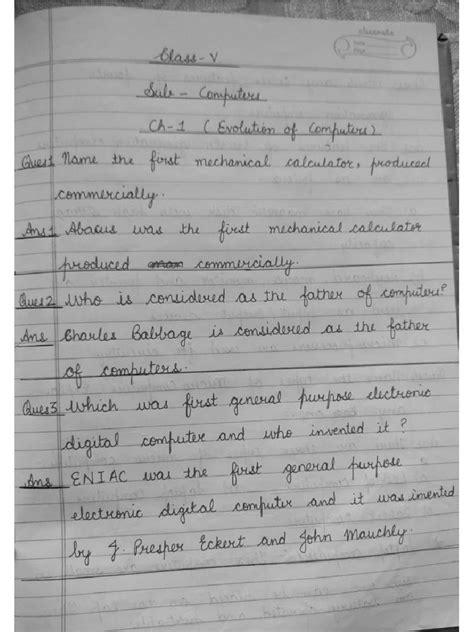 classmate
Date
Page
Class - V
Sub - Computers
Ch-1 ( Evolution of Computers)
Ques1 Name the first mechanical calculator, produced
commercially.
Ans1 Abacus was the first mechanical calculator
produced commercially.
Ques2 Who is considered as the father of computers?
Ans Charles Babbage is considered as the father
of computers.
Ques3 Which was first general purpose electronic
digital computer and who invented it ?
Ans ENIAC was the first general purpose
electronic digital computer and it was invented
by J. Presper Eckert and John Mauchly.